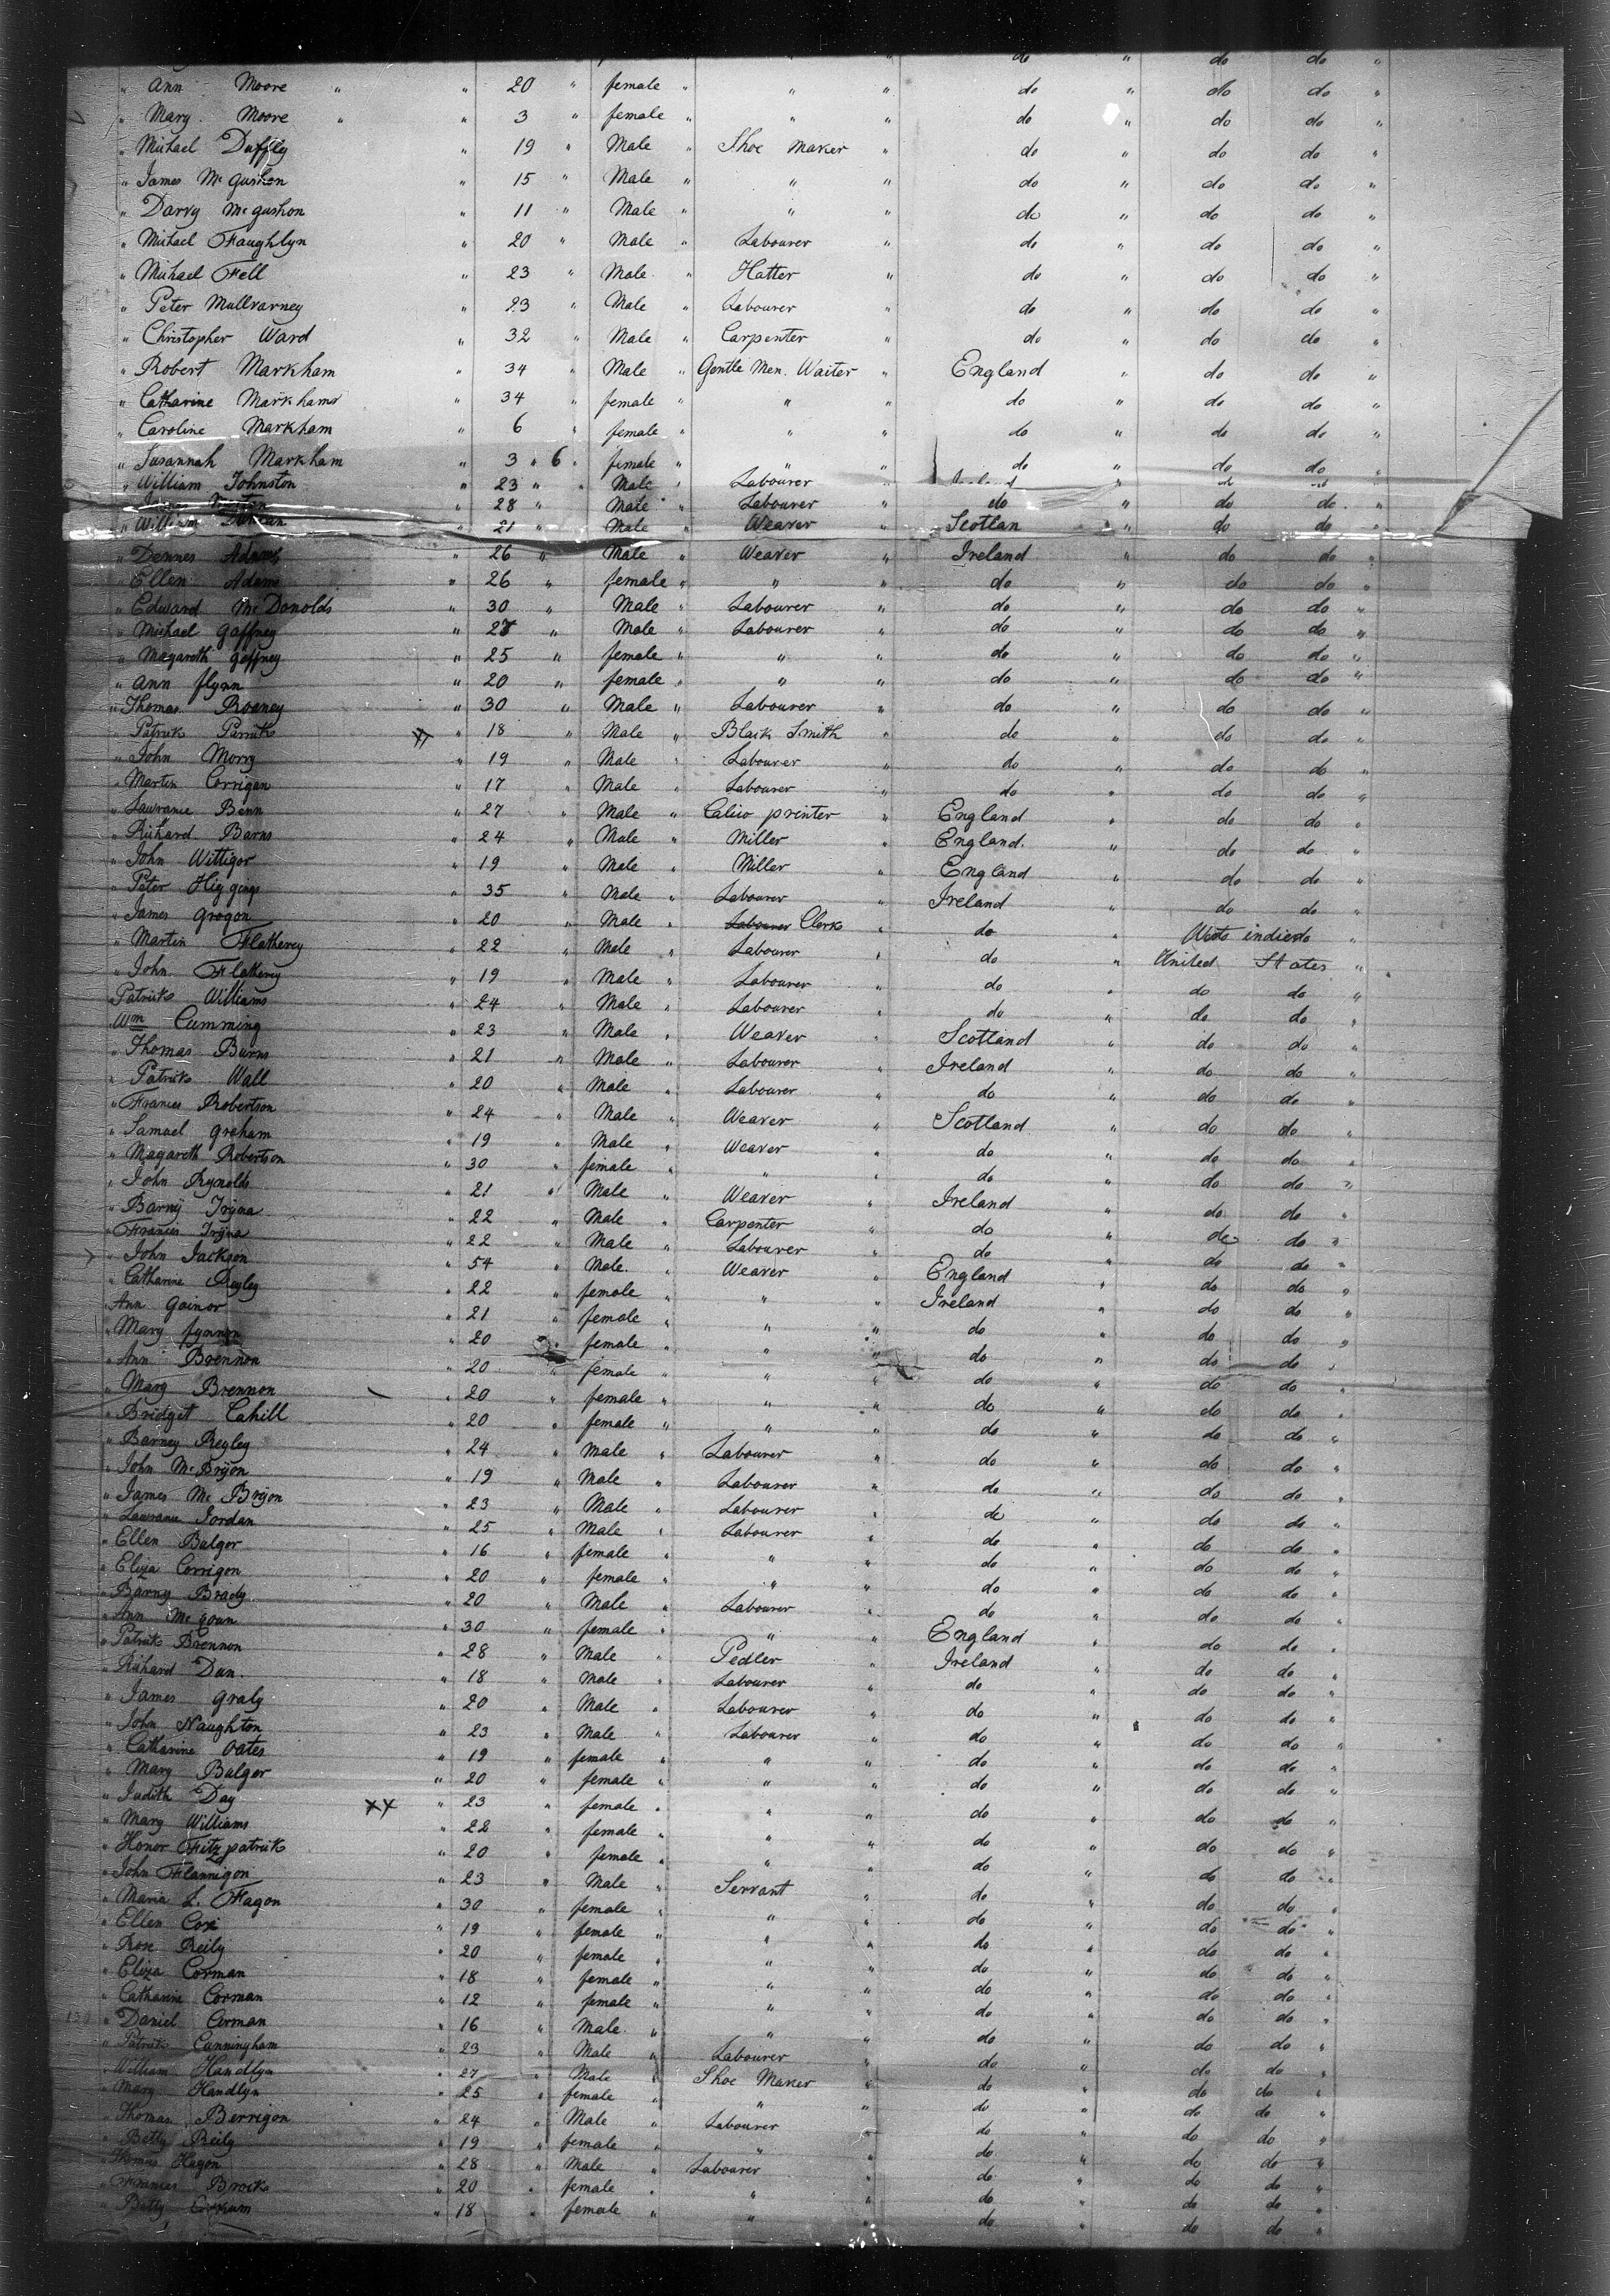 do " do do "
" Ann Moore " " 20 " female " " " do " do do "
" Mary Moore " " 3 " female " " " do " do do "
" Michael Duffey " 19 " Male " Shoe Maker " do " do do "
" James McGushon " 15 " Male " " do " do do "
" Darry McGushon " 11 " Male " " do " do do "
" Michael Faughlyn " 20 " Male " Labourer " do " do do "
" Michael Fell " 23 " Male " Hatter " do " do do "
" Peter Mullvarney " 23 " Male " Labourer " do " do do "
" Christopher Ward " 32 " Male " Carpenter " do " do do "
" Robert Markham " 34 " Male " Gentle Men. Waiter " England " do do "
" Catharine Markham " 34 " female " " do " do do "
" Caroline Markham " 6 " female " " " do " do do "
" Susannah Markham " 3 " 6 " female " " do " do do "
" William Johnston " 23 " " Male " Labourer "
" 28 " Male " Labourer " do " do do "
" William 21 " Male " Weaver " Scotlan " do do "
" Dennes Adams " 26 " Male " Weaver " Ireland " do do "
" Ellen Adams " 26 " female " " " do " do do "
" Edward McDonolds " 30 " Male " Labourer " do " do do "
" Michael Gaffney " " Male " Labourer " do " do do "
" Magareth Gaffney " 25 " female " " " do " do do "
" Ann flynn " 20 " female " " " do " do do "
" Thomas Rooney " 30 " Male " Labourer " do " do do "
" Patrick " 18 " Male " Black Smith " do " do do "
" John Morry " 19 " Male " Labourer " do " do do "
" Martin Corrigan " 17 " Male " Labourer " do " do do "
" Lawrance Benn " 27 " Male " Calico printer " England " do do "
" Richard Barns " 24 " Male " Miller " England. " do do "
" John Wittigor " 19 " Male " Miller " England " do do "
" Peter Higgings " 35 " Male " Labourer " Ireland " do do "
" James Grogon " 20 " Male " Labourer Clerk " do "
" Martin Flatherey " 22 " Male " Labourer " do " United States "
" John Flatherey " 19 " Male " Labourer " do " do do "
" Patrick Williams " 24 " Male " Labourer " do " do do "
" Wm Cumming " 23 " Male " Weaver " Scotland " do do "
" Thomas Burns " 21 " Male " Labourer " Ireland " do do "
" Patrick Wall " 20 " Male " Labourer " do " do do "
" Frances Robertson " 24 " Male " Weaver " Scotland " do do "
" Samuel Greham " 19 " Male " Weaver " do " do do "
" Magareth Robertson " 30 " female " " do " do do "
" John Rynolds " 21 " Male " Weaver " Ireland " do do "
" Barny " 22 " Male " Carpenter " do " do do "
" Frances " 22 " Male " Labourer " do " do do "
" John Jackson " 54 " Male " Weaver " England " do do "
" Catharine Regley " 22 " female " " " Ireland " do do "
" Ann Gainor " 21 " female " " " do " do do "
" Mary fynnon " 20 " female " " " do " do do "
" Ann Brennon " 20 " female " " " do " do do "
" Mary Brennon " 20 " female " " " do " do do "
" Bridget Cahill " 20 " female " " " do " do do "
" Barney Regley " 24 " Male " Labourer " do " do do "
" John McBryon " 19 " Male " Labourer " do " do do "
" James McBryon " 23 " Male " Labourer " do " do do "
" Lawrance Jordan " 25 " Male " Labourer " do " do do "
" Ellen Bulger " 16 " female " " " do " do do "
" Eliza Corrigon " 20 " female " " " do " do do "
" Barney Brady " 20 " Male " Labourer " do " do do "
" Ann McGoun " 30 " female " " " England " do do "
" Patrick Brennon " 28 " Male " Pedler " Ireland " do do "
" Richard Dun. " 18 " Male " Labourer " do " do do "
" James Graly " 20 " Male " Labourer " do " do do "
" John Naughton " 23 " Male " Labourer " do " do do "
" Catharine Oates " 19 " female " " " do " do do "
" Mary Bulger " 20 " female " " " do " do do "
" Judith Day XX " 23 " female " " " do " do do "
" Mary Williams " 22 " female " " " do " do do "
" Honor Fitzpatrick " 20 " female " " " do " do do "
" John Flannigon " 23 " Male " Servant " do " do do "
" Maria L. Fagon " 30 " female " " " do " do do "
" Ellen Cox " 19 " female " " " do " do do "
" Rose Reily " 20 " female " " " do " do do "
" Eliza Corman " 18 " female " " " do " do do "
" Catharine Corman " 12 " female " " " do " do do "
" Daniel Corman " 16 " Male " " " do " do do "
" Patrick Cunningham " 23 " Male " Labourer " do " do do "
" William Handlyn " 27 " Male " Shoe Maker " do " do do "
" Mary Handlyn " 25 " female " " " do " do do "
" Thomas Berrigon " 24 " Male " Labourer " do " do do "
" Betty Reily " 19 " female " " " do " do do "
" Thomas Hagon " 28 " Male " Labourer " do " do do "
" Frances Brock " 20 " female " " " do " do do "
" Betty " 18 " female " " " do " do do "